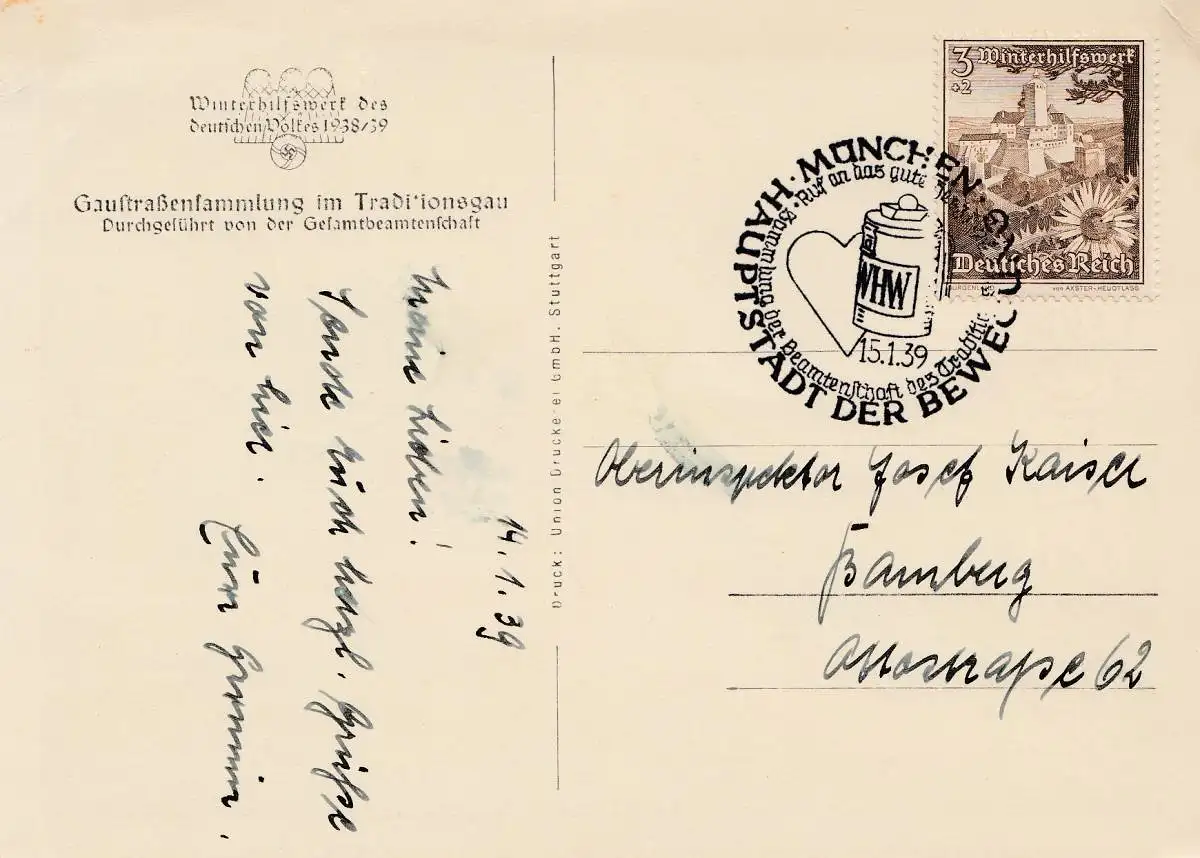 Winterhilfswerk des
deutschen Volkes 1938/39
Gaustraßensammlung im Traditionsgau
Durchgeführt von der Gesamtbeamtenschaft
14.1.39
Meine Lieben!
Sende Euch herzl. Grüße
von hier.
Eure
Druck: Union Druckerei GmbH. Stuttgart
3
+2
Winterhilfswerk
Deutsches Reich
von AXSTER-HEUDTLASS
MÜNCHEN · HAUPTSTADT DER BEWEGUNG
Ruf an das gute
Sammlung der Beamtenschaft des
WHW
15.1.39
Oberinspektor Josef Kaiser
Bamberg
Ottostraße 62